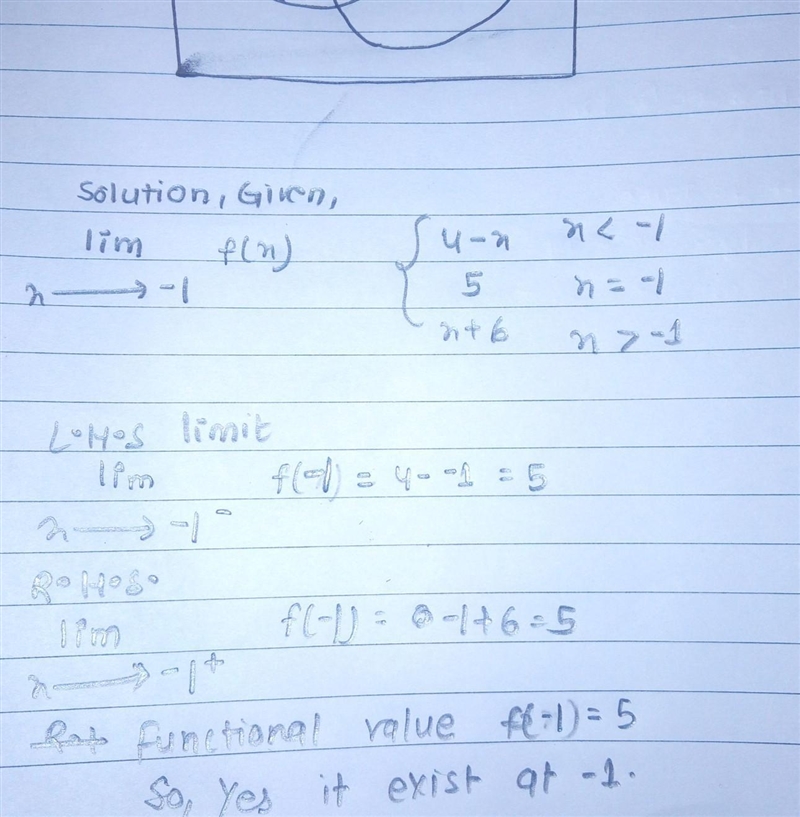 Solution, Given,
lim f(x) { 4-x x < -1
x → -1 5 x = -1
x+6 x > -1
L.H.S limit
lim f(-1) = 4--1 = 5
x → -1⁻
R.H.S.
lim f(-1) = -1+6=5
x → -1⁺
functional value f(-1) = 5
So, Yes it exist at -1.